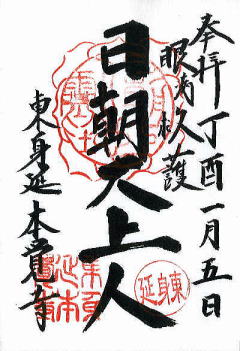 奉拝丁酉一月五日
眼病救護
日朝大上人
東身延本覺寺
東身延